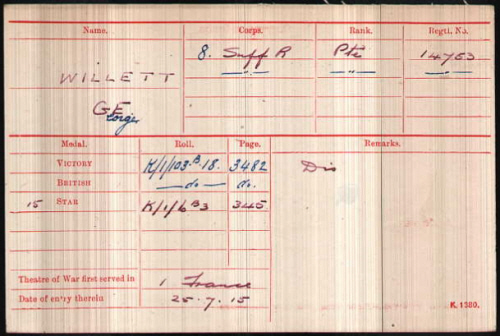 Name. Corps. Rank. Regtl. No.
8. Suff R Pte 14763
WILLETT —"— —"— —"—
G E
George
Medal. Roll. Page. Remarks.
VICTORY K/1/103.B.18. 3482 Dis
BRITISH —do— do.
15 STAR K/1/6 B3 345
Theatre of War first served in 1 France
Date of entry therein 25.7.15
K.1380.